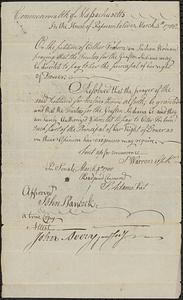 Commonwealth of Massachusetts
In the House of Representatives March 8th
On the petition of Esther Freeborn, an Indian Woman
praying that the Trustees for the Grafton Indians may
be to her the principal of her right
of Dower
Resolved that the prayer of the
said Petition for reasons therein set forth, be granted
and that the Trustees for the Grafton Indians &c, and they
are hereby Authorized & directed to Esther
such part of the Principal of her Right of Dower as
in their Opinion her may require
Sent up for concurrence
J Warren Spkr
In Senate, March 8
Read and Concurred
S. Adams Presidt
Approved
John Hancock
A true Copy
Attest
John Avery